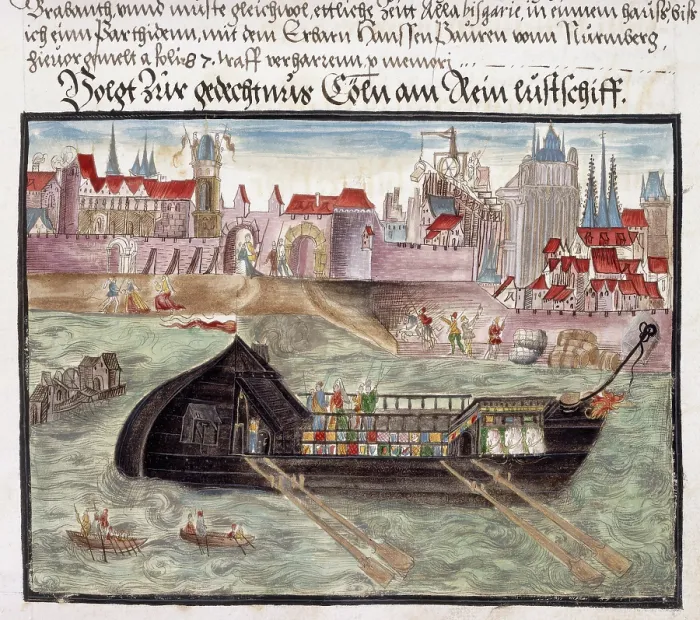 Brabanth, vnnd müste gleichwol, ettliche Zeitt Alla bisgarie, in einnem hauß, biß
ich zum Parthidenn, mit dem Erbarn Hannssen Bäuren vonn Nürmberg,
hieuor gemelt a folio 7. traff verharrenn, p memori ...
Volgt Zür gedechtnus Cöln am Rein lustschiff.